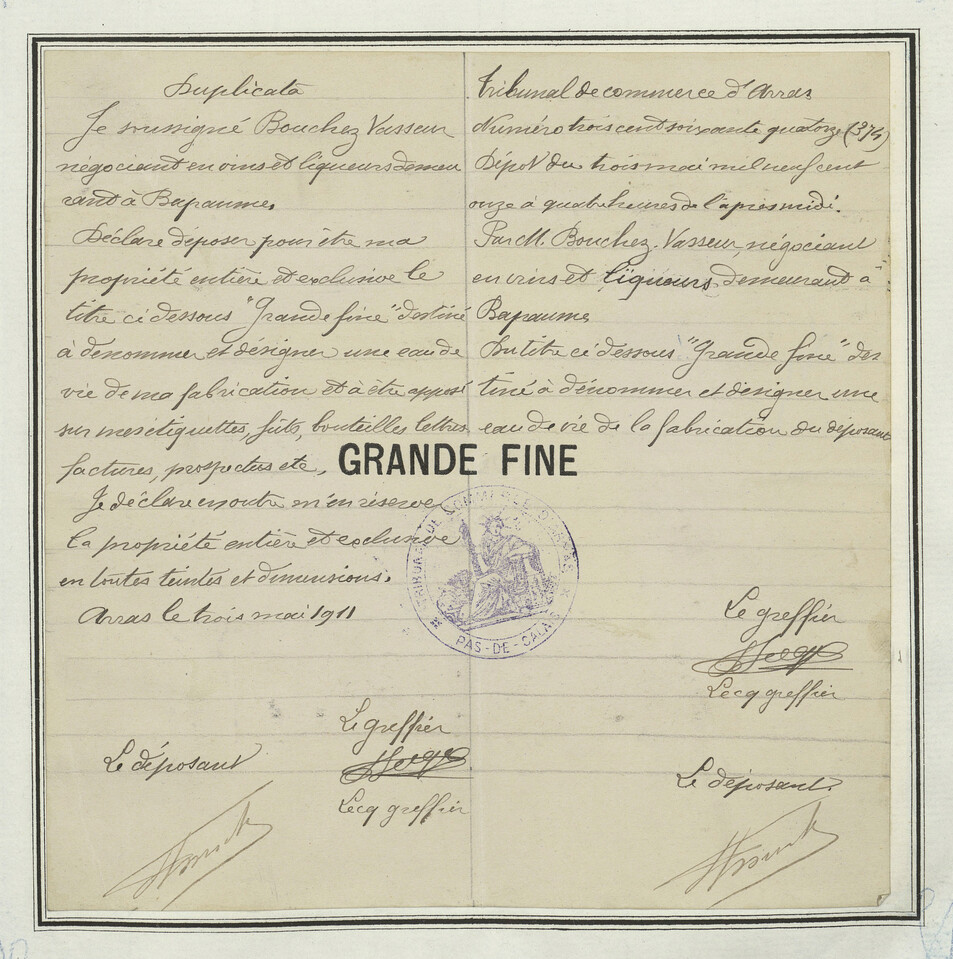 Duplicata
Je soussigné Bouchez Vasseur
négociant en vins et liqueurs demeu
rant à Bapaume,
Déclare déposer pour être ma
propriété entière et exclusive le
titre ci dessous "Grande fine" destiné
à dénommer et désigner une eau de
vie de ma fabrication et à être apposé
sur mes étiquettes, fûts, bouteilles, lettres,
factures, prospectus etc,
Je déclare en outre m'en réserver
la propriété entière et exclusive
en toutes teintes et dimensions.
Arras le trois mai 1911
Le greffier
Lecq greffier
Le déposant
Tribunal de commerce d'Arras
Numéro trois cent soixante quatorze (374)
Dépot du trois mai mil neuf cent
onze à quatre heures de l'après midi.
Par M. Bouchez-Vasseur, négociant
en vins et liqueurs, demeurant à
Bapaume
Du titre ci dessous "Grande fine" des
tiné à dénommer et désigner une
eau de vie de la fabrication du déposant
GRANDE FINE
TRIBUNAL DE COMMERCE D'ARRAS
PAS-DE-CALAIS
Le greffier
Lecq greffier
Le déposant.